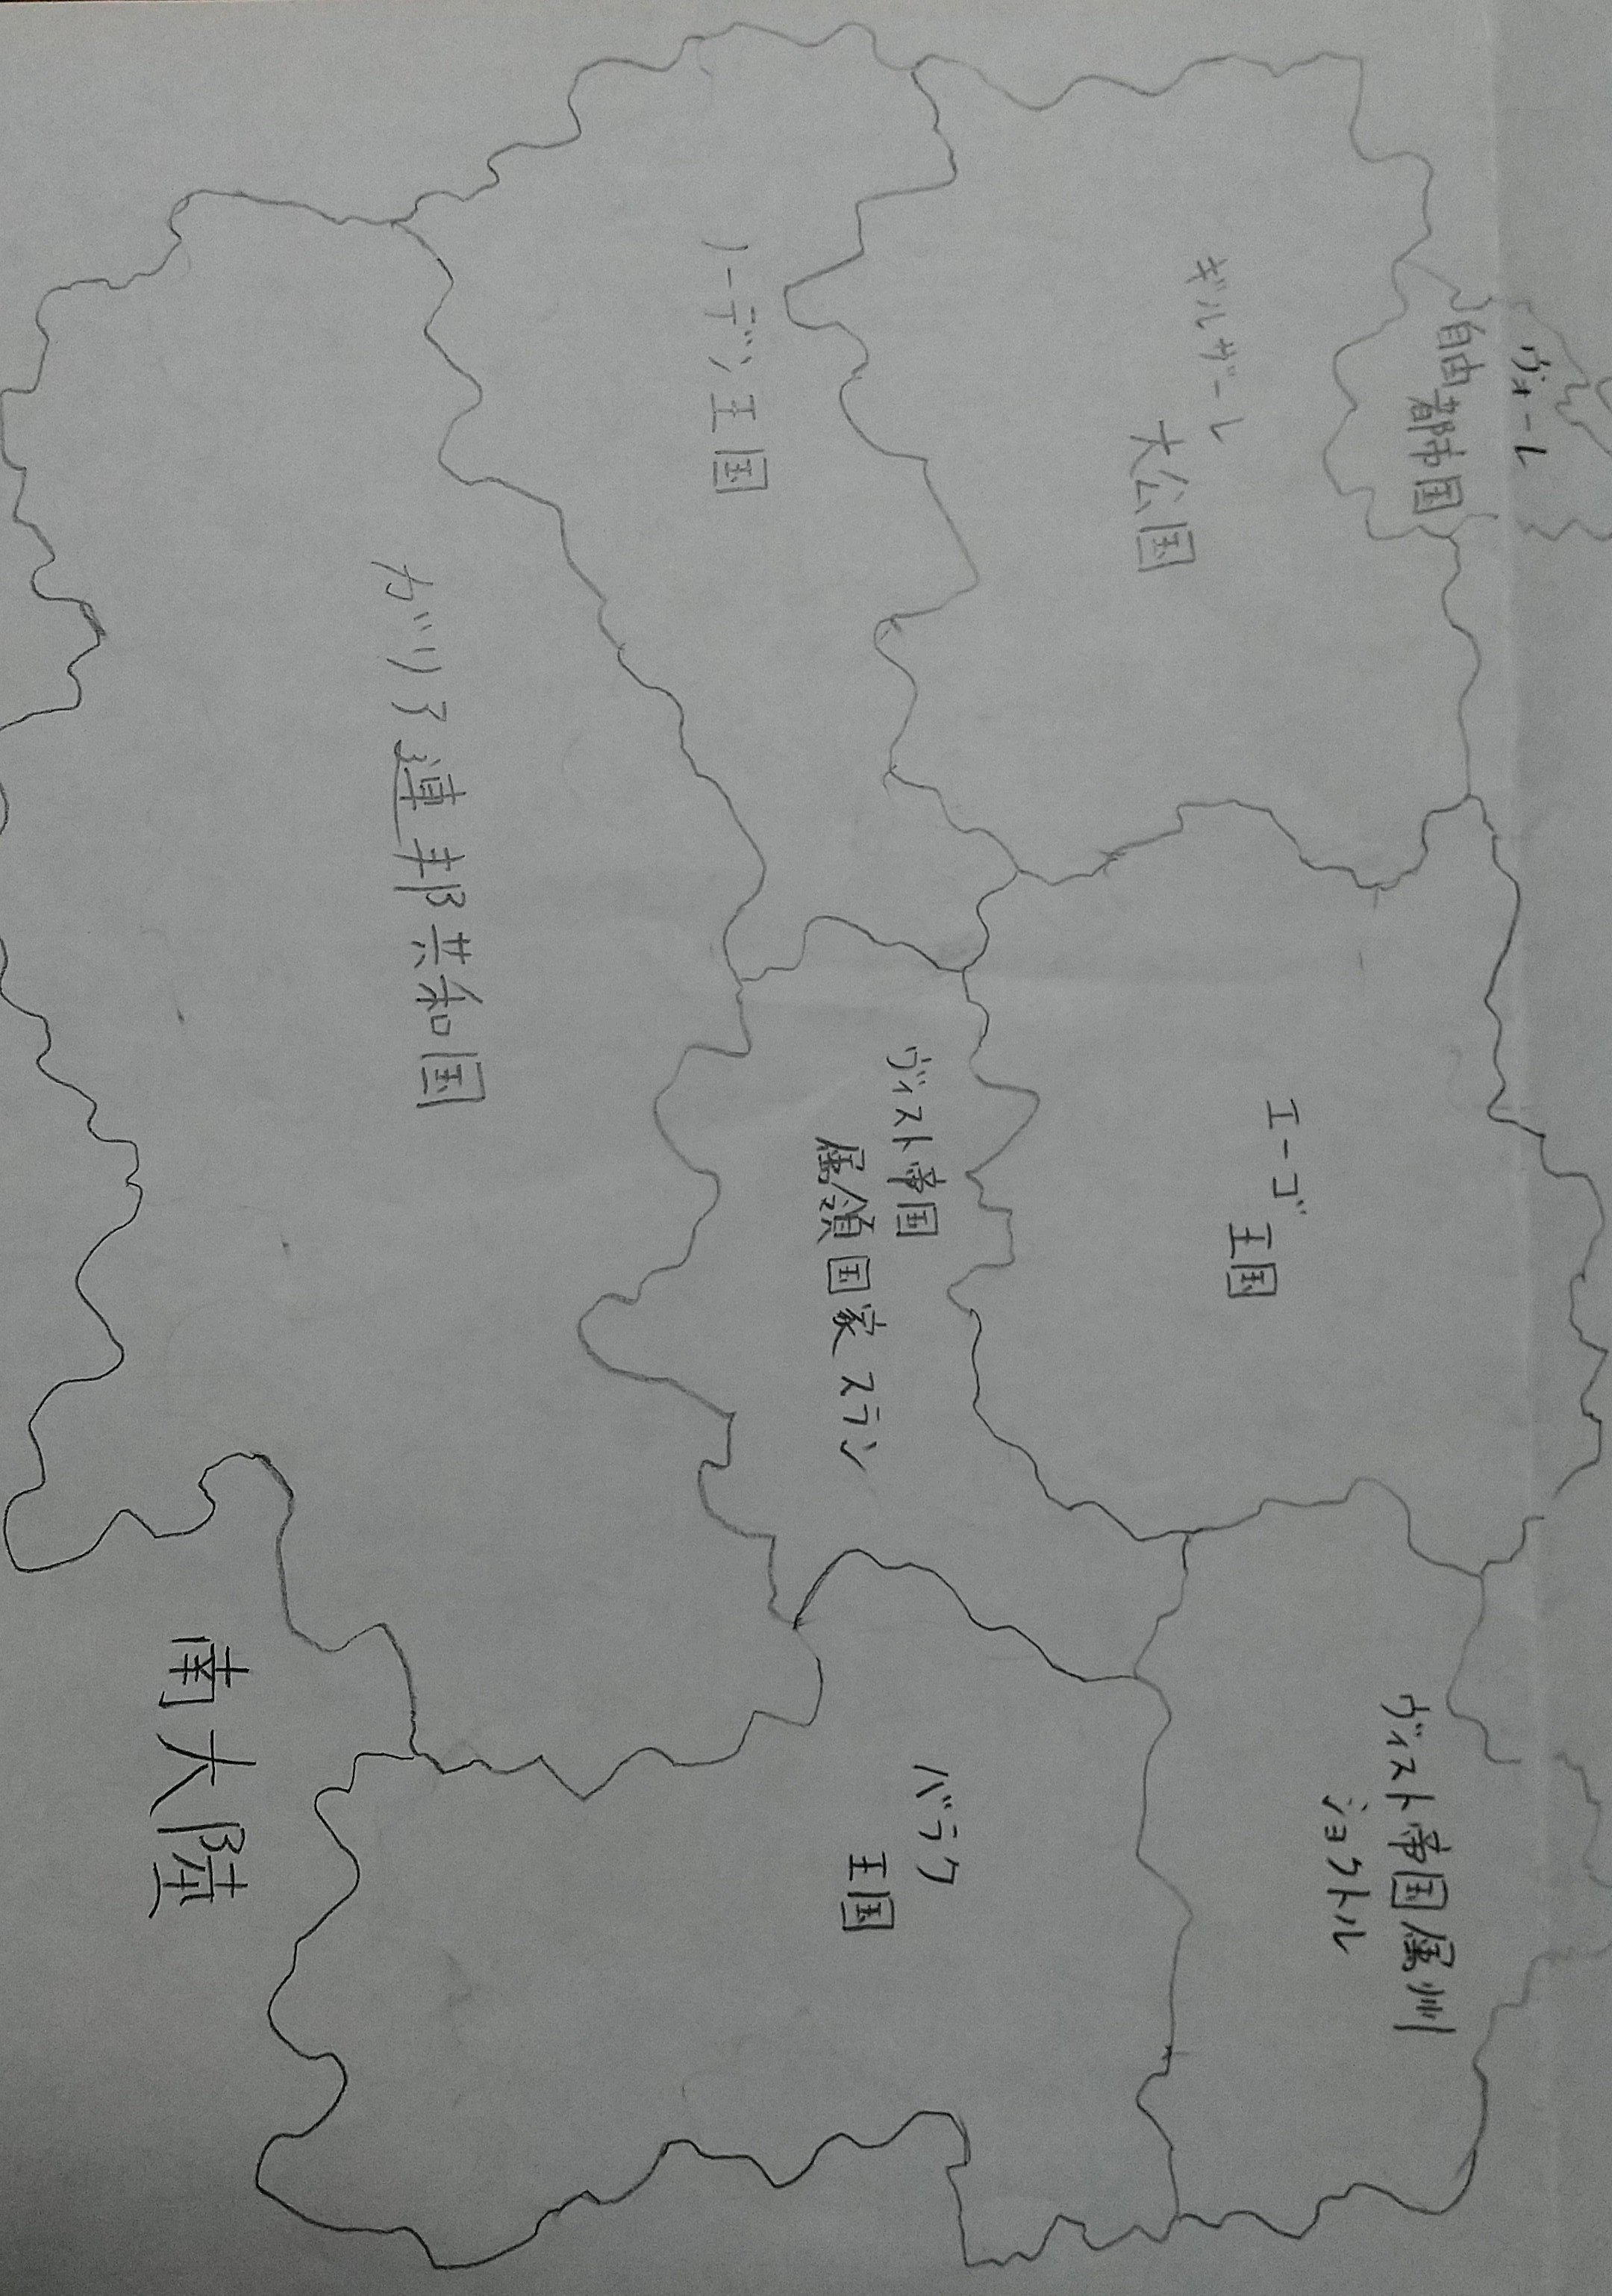 ヴォーレ
自由都市国
ギルザーレ
大公国
ノーデン王国
ガリア連邦共和国
エーゴ
王国
ヴィスト帝国
属領国家スラン
ヴィスト帝国属州
ジョクトル
バラク
王国
南大陸